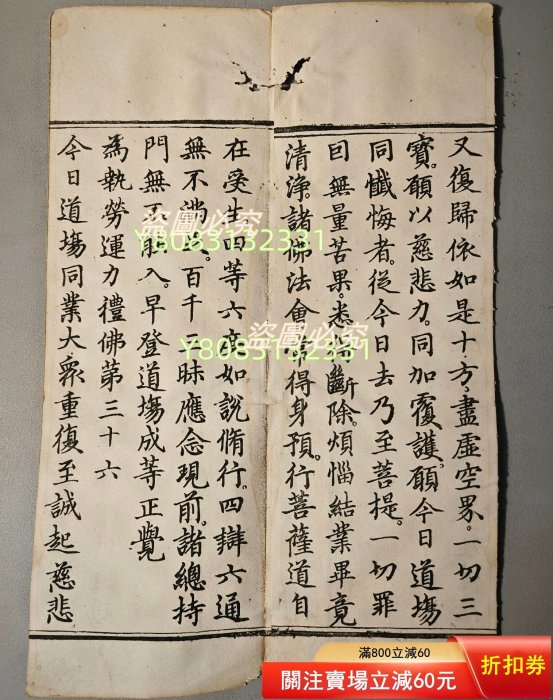 又復歸依如是十方。盡虛空界。一切三
寶。願以慈悲力。同加覆護。願今日道場
同懺悔者。從今日去乃至菩提。一切罪
因無量苦果。悉皆斷除。煩惱結業畢竟
清淨諸佛法會常得身預。行菩薩道自
在受生四等六度如說脩行。四辯六通
無不滿足。百千三昧應念現前。諸總持
門無不能入。早登道場成等正覺
為執勞運力禮佛第三十六
今日道場同業大眾重復至誠起慈悲
盜圖必究
Y8085152331
盜圖必究
Y8085152331
滿800立減60
關注賣場立減60元
折扣券